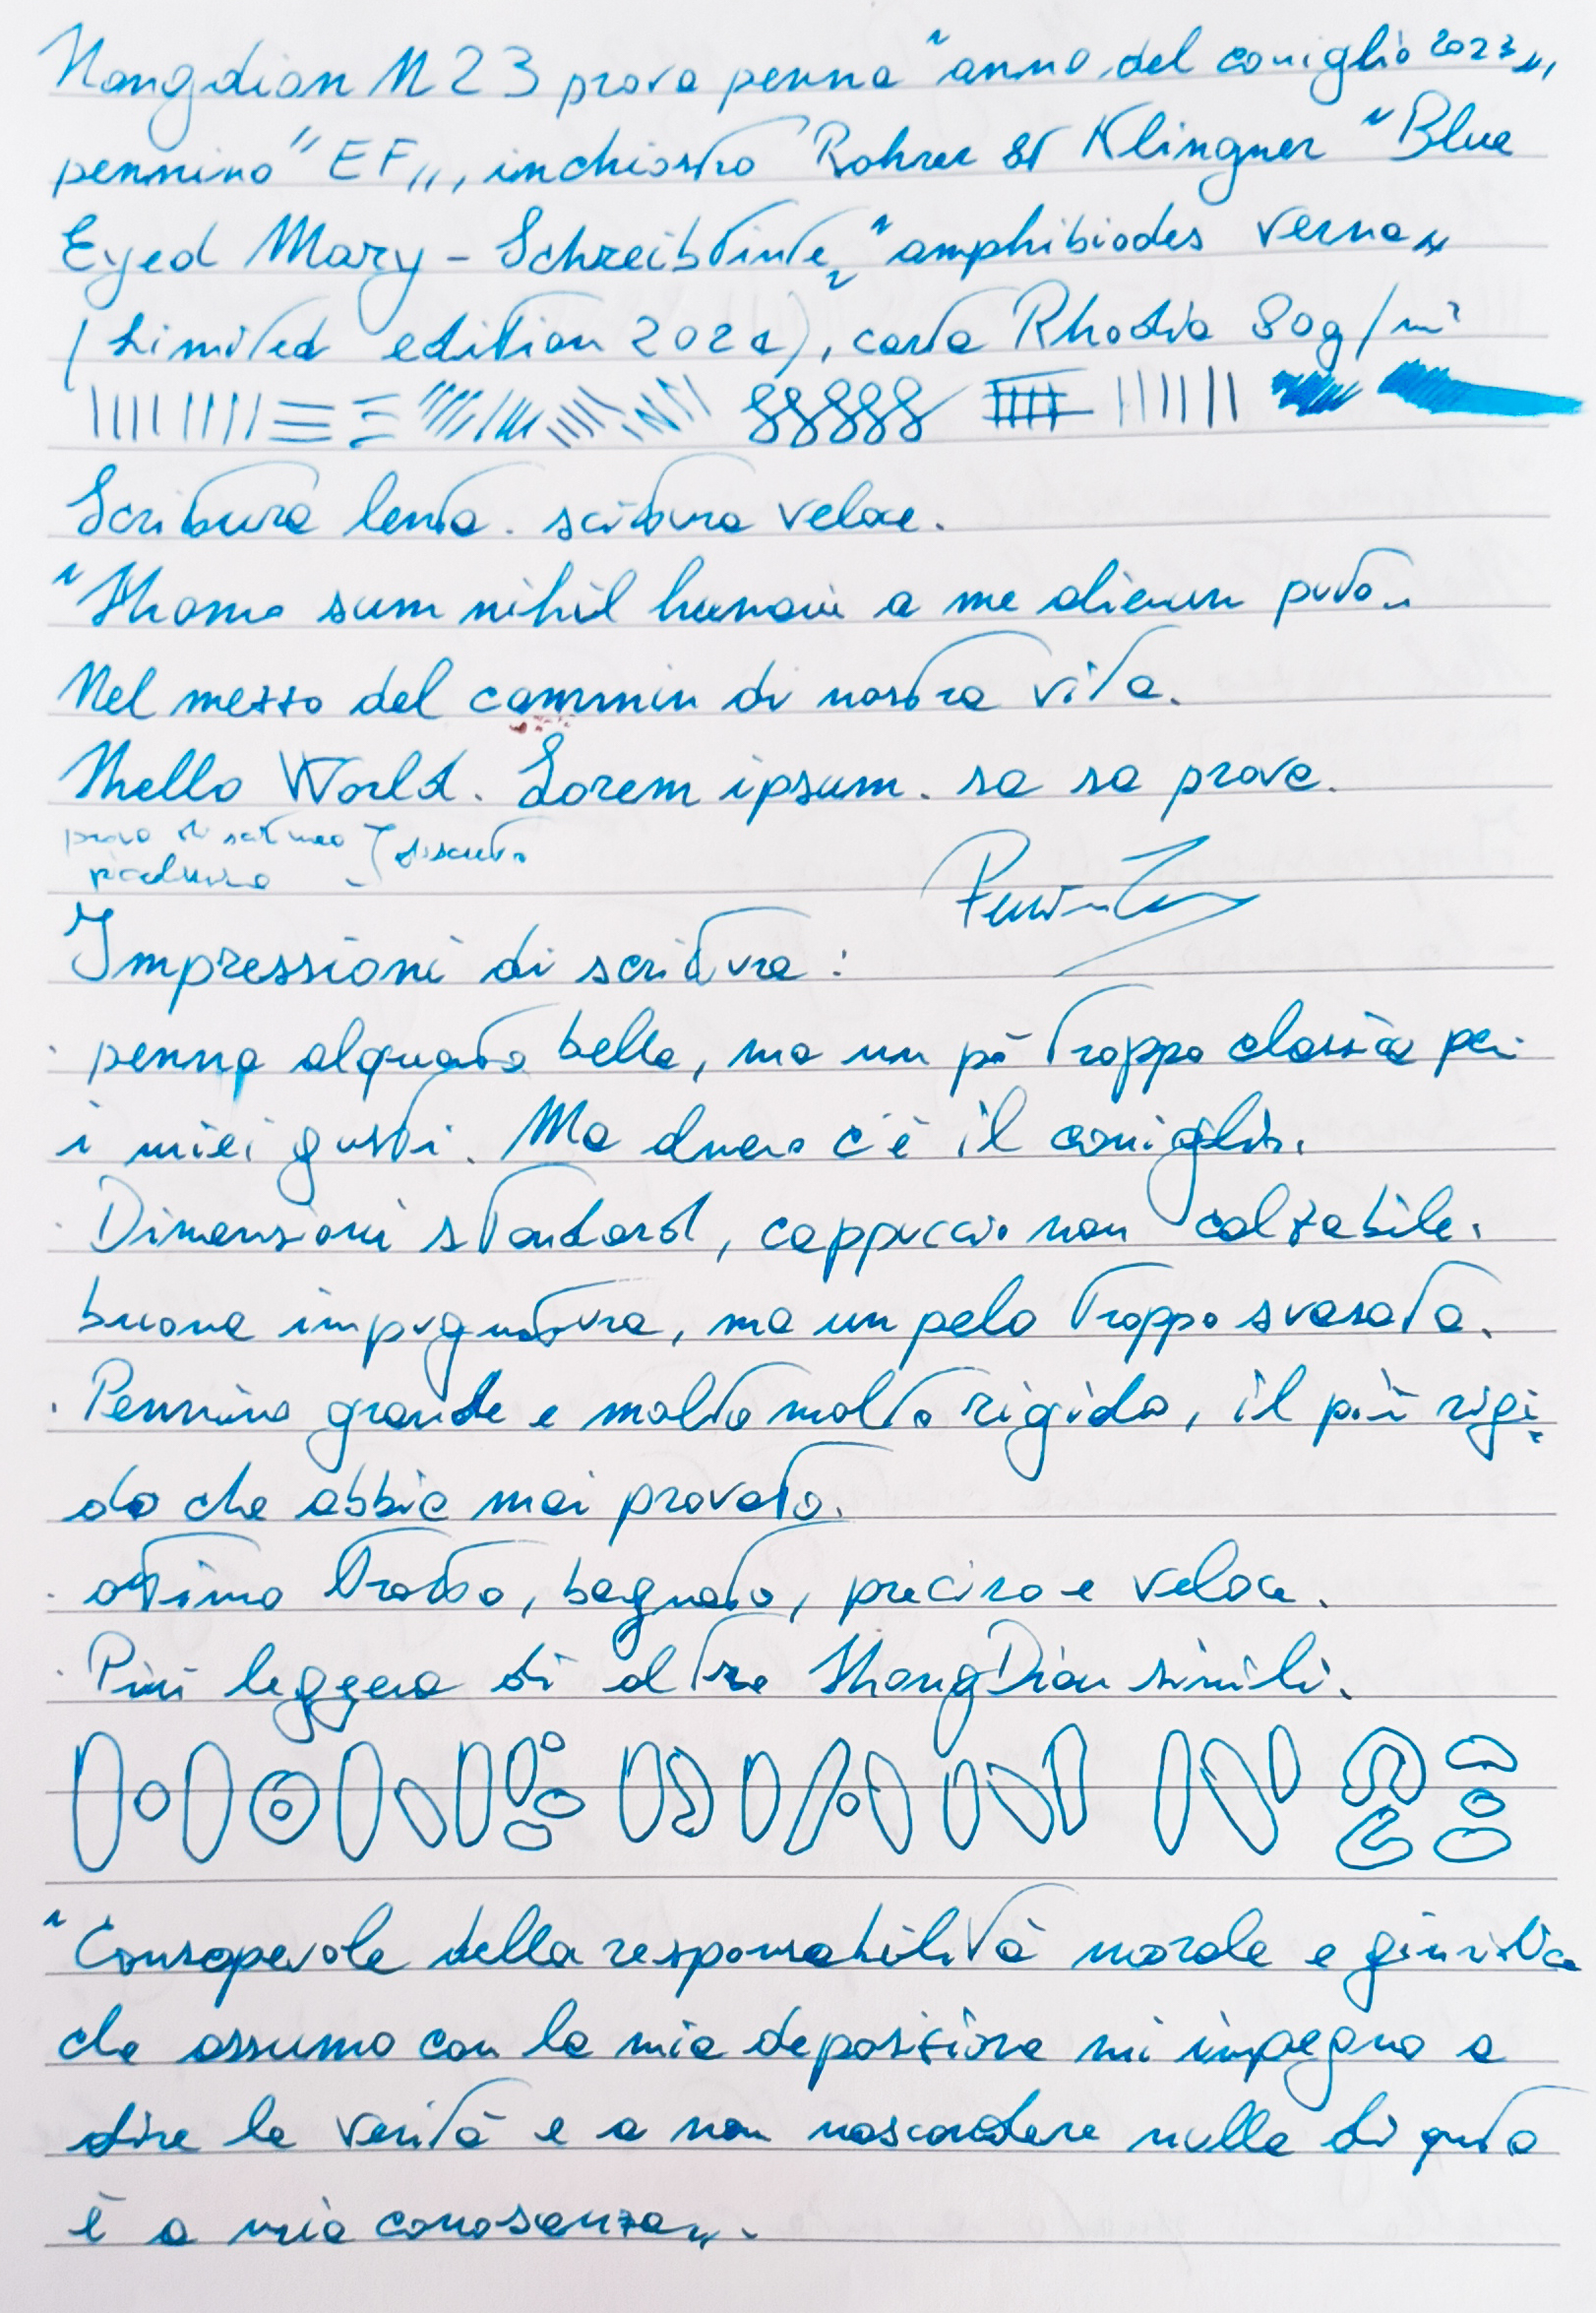 Hongdian M23 prova penna "anno del coniglio 2023",
pennino "EF", inchiostro Rohrer & Klingner "Blue
Eyed Mary - Schreibtinte, "amphibiodes verna"
(Limited edition 2024), carta Rhodia 80g/m²
Scrittura lenta. scittura veloce.
"Homo sum nihil humani a me alienum puto"
Nel mezzo del cammin di nostra vita.
Hello World. Lorem ipsum. sa sa prova.
prova di scittura
piccolissima } discreta
Impressioni di scrittura:
· penna alquanto bella, ma un pò troppo classica per
i miei gusti. Ma almeno c'è il coniglio.
· Dimensioni standard, cappuccio non calzabile.
buona impugnatura, ma un pelo troppo svasata.
· Pennino grande e molto molto rigido, il più rigi
do che abbia mai provato.
· ottimo tratto, bagnato, preciso e veloce.
· Più leggera di altre HongDian simili.
"Consapevole della responsabilità morale e giuridica
che assumo con la mia deposizione mi impegno a
dire la verità e a non nascondere nulla di quanto
è a mia conoscenza".